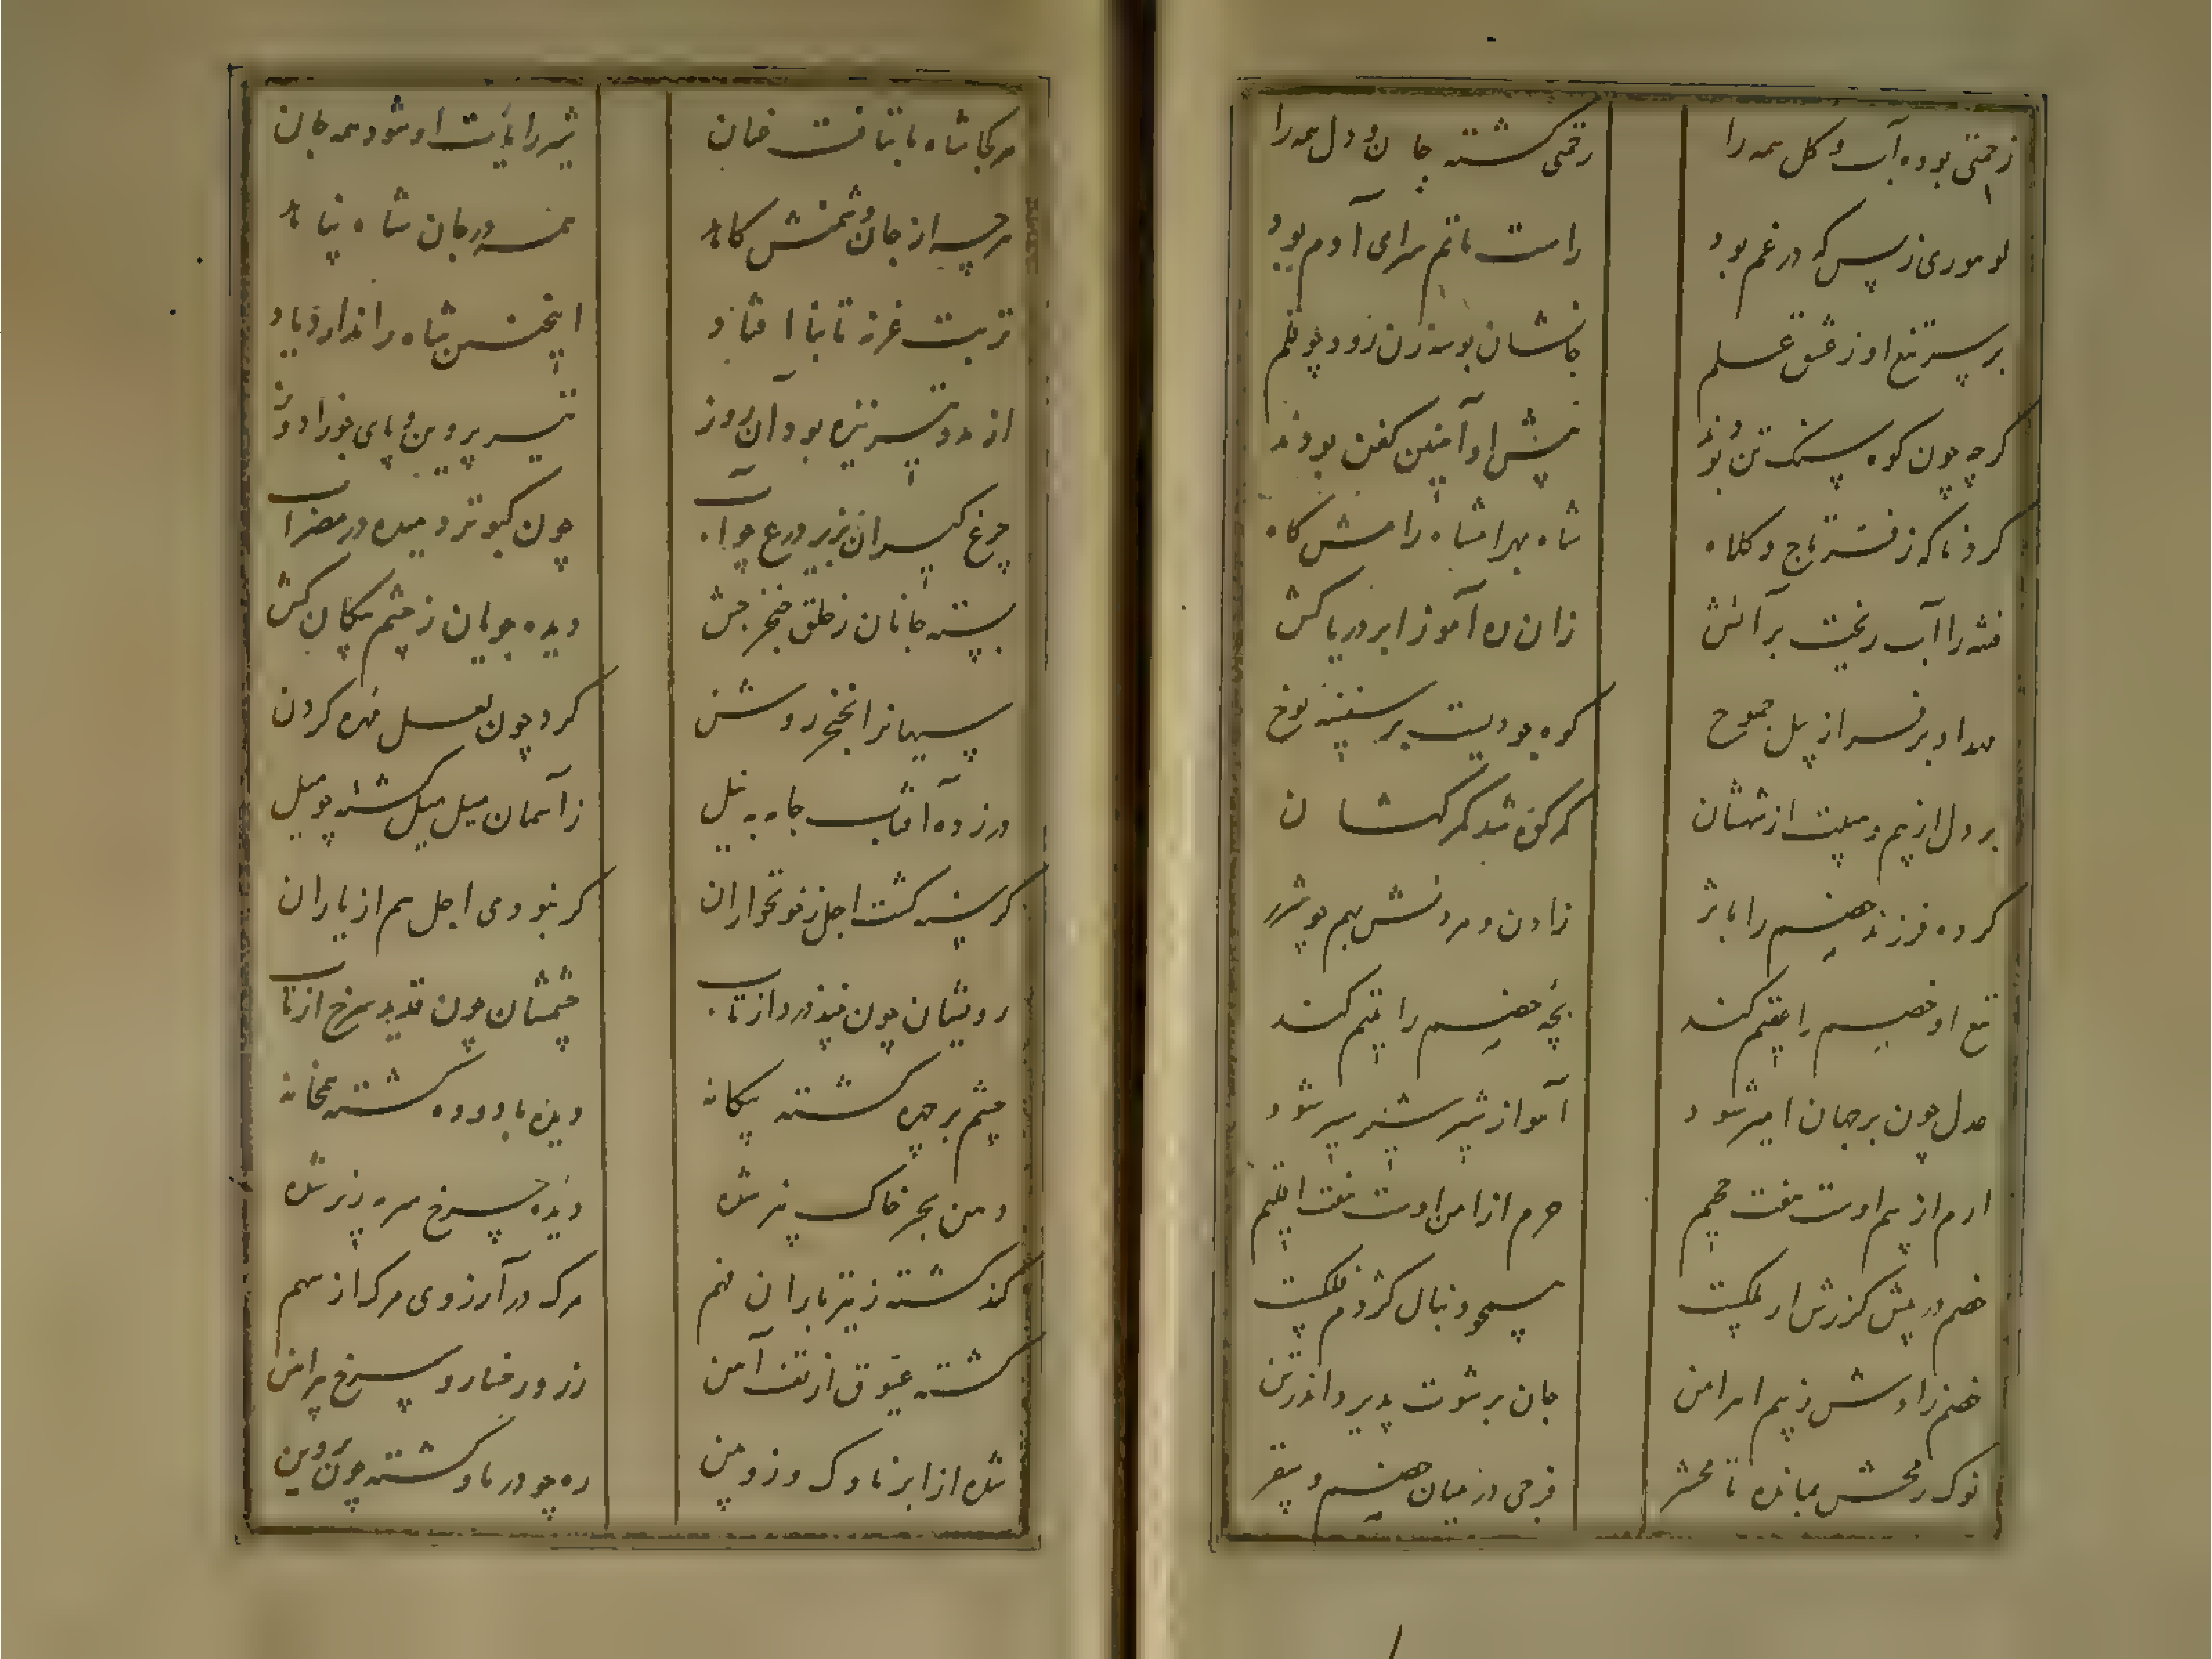 زحمتی بوده آب و کل همه را رقمی کشته جان و دل همه را
لوهوری ز بس که در غم بود راست ماتم سرای آدم بود
بر سر تیغ او ز عشق علم جانشان بوسه زن زود چو قلم
کرچه چون کوه سنک تن بودند پیش او آبنین کفن بودند
کرد ناکه ز فتنه تاج و کلاه شاه بهرامشاه رامش کاه
فتنه را آب ریخت بر آتش زان ره آموز ابر دریا کش
مهد او بر فراز پیل جموح کوه جودیست بر سفینه نوح
بر دل از بیم و هیبت از شهشان که کوه شد کمرکشان
کرده فرزند خصم را با شر زادن و مردنش بهم چو شرر
تیغ او خصم را عقیم کند بچه خصم را یتیم کند
عدل چون بر جهان امیر شود آهو از شیر شیر سیر شود
ارم از بیم اوست هفت جحیم حرم از امن اوست هفت اقلیم
خصم در پیش کرزش ار ملکیست همچو دنبال کژدم فلکیست
خصم زادش ز بیم اهرامن جان بر شوت پدیرد اندر تن
نوک رمحش بمانده تا محشر فرجی در میان خصم و سقر
هرکجا شاه ما بتافت عنان شیر رایت او شود همه جان
هرچه از جان دشمنش کاهد همه در جان شاه پناهد
تربت غزنه تا بنا افتاد اینچنین شاه را ندارد یاد
از مدد تیر نیزه بود آن روز تیر پروین و پای جوزا دوز
چرغ کیران بزیر درع چو آب چون کبوتر دمیده در مضراب
بسته جانان ز حلق خنجر جش دیده جویان ز چشم پیکان کش
سپهانرا خنجر روشن کرد چون لعل مهره کردن
در زده آفتاب جامه به نیل ز آسمان میل میل کشته چو میل
کرسنه کشت اجل ز خونخواران کر نبودی اجل هم از یاران
رویشان چون پنیرود از تاب چشمشان چون قدید سرخ از تاب
چشم بر چهره کشته پیکانه دیده با دوده کشته همخانه
دهن بحر خاک پر شده دیده چرخ سرمه پر شده
کند کشته ز تیر باران فهم مرک در آرزوی مرک از سهم
کشته عیوق از تف آهن زرد رخسار و سرخ پیراهن
شده از ابر ناوک و زوبین ره چو در ناو کشته چون پروین